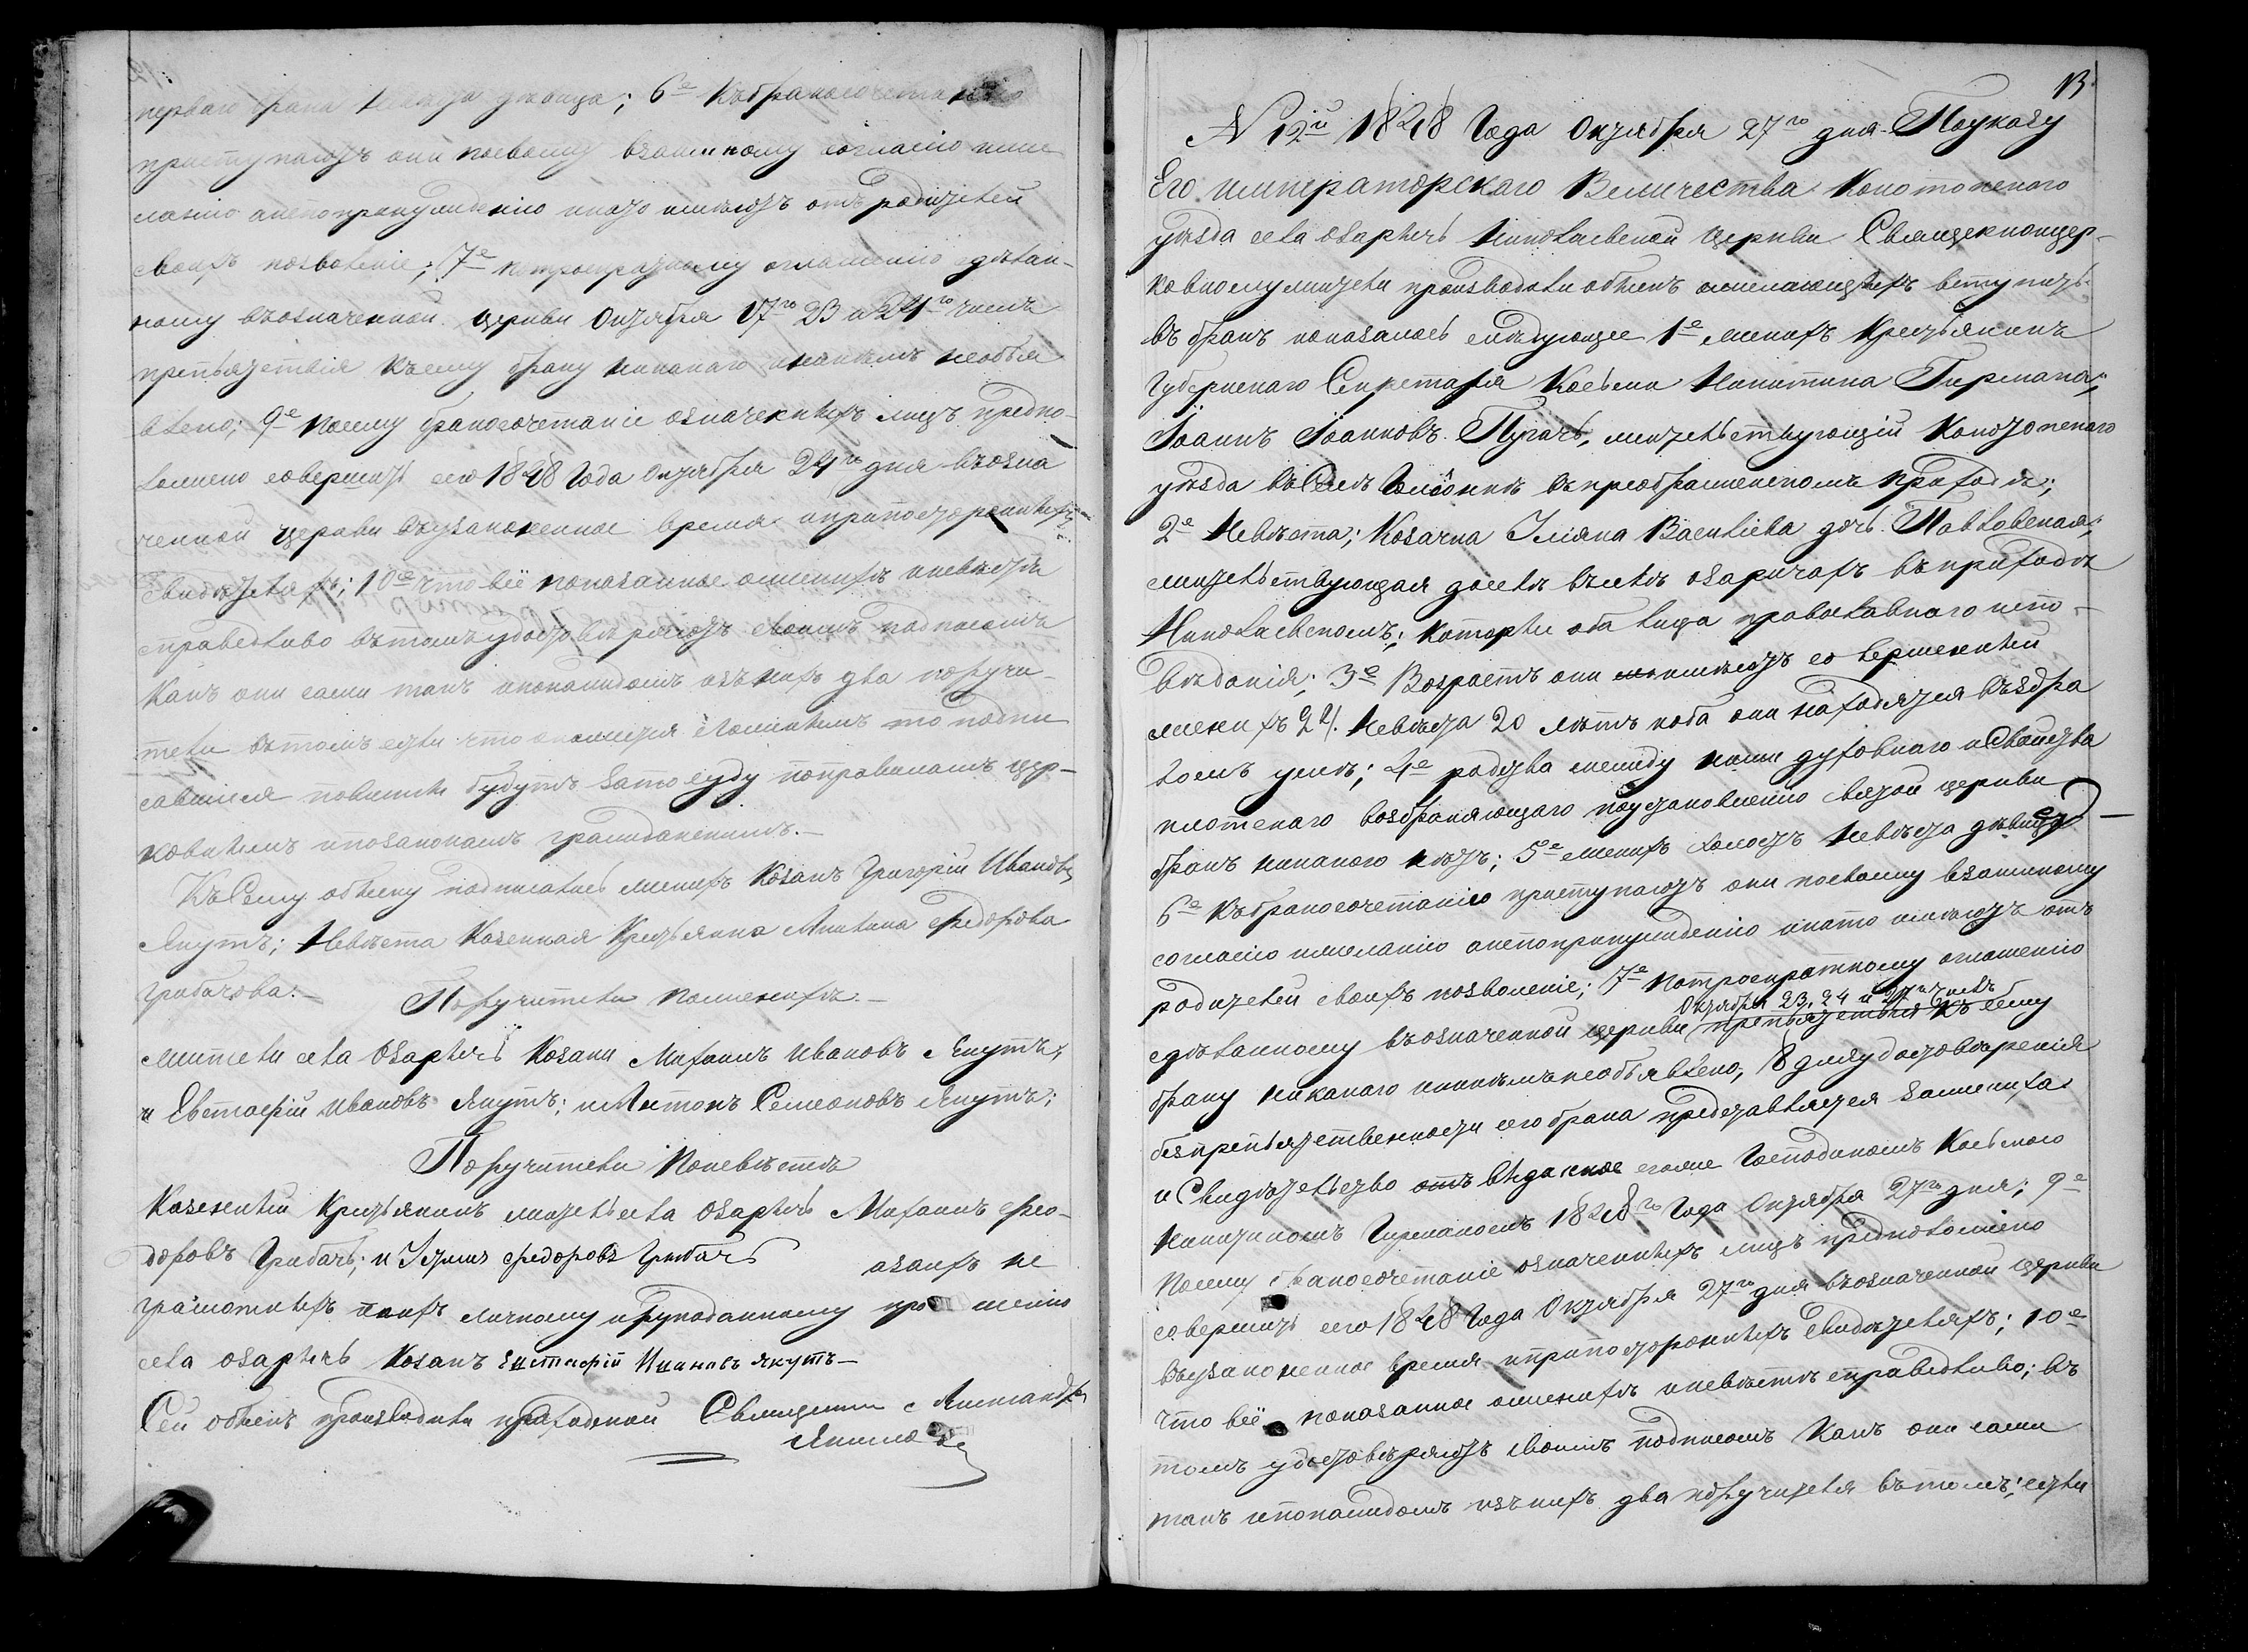 перваго брака невеста девица; 6е Къбракосочетанию
приступаютъ они посвоему взаимному согласію иже
ланію анепопринужденію инато имѣютъ отъ родителей
своихъ позволеніе; 7е потроекратному оглашенію сдѣлан-
ному въозначенной церкви Октября 17го 23 и 24го числъ
препятствія къ сему браку никакаго никѣмъ необъя
влено; 9е посему бракосочетаніе означенныхъ лицъ предпо-
ложено совершить сего 1848 Года Октября 24го дня въозна
ченной церкви въузаконенное время иприпостороннихъ
свидѣтеляхъ; 10е что всё показанное оженихѣ иневѣстѣ
справедливо вътомъ удостовѣряютъ своимъ подписомъ
Какъ они сами такъ ипокаждомъ изъ нихъ два поручи-
теля вътомъ если что окажется ложнымъ то подпи
савшіеся повинны будутъ зато суду поправиламъ цер-
ковнымъ ипозаконамъ гражданскимъ.-
Къ Сему обыску подписались женихъ Козакъ Григорій Ивановъ
Якутъ; Невѣста Казенная Крестьянка Акилина Федорова
Грибачова.-
Поручители поженихѣ.-
жители села Озарычь Козаки Михаилъ Ивановъ Якутъ;
и Евстафій Ивановъ Якутъ; и Антонъ Семеоновъ Якутъ;
Поручители Поневѣстѣ
Казенный Крестьянинъ житель села Озарычь Михаилъ Фео-
доровъ Грибачь; и Федоровъ Грибачь азаихъ не
грамотныхъ поихъ личному ирукоданному прошенію
села Озарычь Козакъ Евстафій Ивановъ Якутъ-
Сей обыскъ производили приходской Священникъ Александръ
13
N 12й 1848 Года Октября 27го дня Поуказу
Его императорскаго Величества Конотопскаго
уѣзда села Озарычь Николаевской Церкви Священноцер-
ковнослужители производили обыскъ ожелающихъ вступить
въ бракъ показалось слѣдующее 1е женихъ Крестьянинъ
Губернскаго Секретаря Косьмы Никитина Гирмана;
Іоаннъ Іоанновъ Пугачь, жительствующій Конотопскаго
уѣзда въ Селѣ въпреображенскомъ приходѣ;
2е Невѣста; Козачка Уліяна Васильева дочь Павловская;
жительствующая доселѣ въселѣ озаричахъ въ приходѣ
Николаевскомъ; которые оба лица православнаго испо-
вѣданія; 3е Возрастъ они имѣютъ совершенный
женихъ 24. Невѣста 20 лѣтъ иоба они находятся въздра
вомъ умѣ; 4е родства между ними духовнаго иСвойства
плотскаго возбраняющаго поустановленію святой церкви
бракъ никакого нѣтъ; 5е женихъ холостъ Невѣста дѣвица
6е Къбракосочетанію приступаютъ они посвоему взаимному
согласію ижеланію анепопринужденію инато имѣютъ отъ
родителей своихъ позволеніе; 7е потроекратному оглашенію
Октября 23, 24 и 27 числъ
сдѣланному въозначенной церкви препятствія къ сему
браку никакаго никѣмъ необъявлено; 8 для удостовѣренія
безпрепятственности сего брака представляется заженихъ
и Свидѣтельство отъ выданное егоже Господиномъ Косьмою
Никитиномъ Гирманомъ 1848го Года Октября 27го дня; 9е
посему бракосочетаніе означенныхъ лицъ предположено
совершить сего 1848 Года Октября 27го дня въозначенной церкви
въузаконенное время иприпостороннихъ Свидѣтеляхъ; 10е
что всё показанное оженихѣ иневѣстѣ справедливо; въ
томъ удостовѣряютъ своимъ подписомъ Какъ они сами
такъ ипокаждомъ изъ нихъ два поручителя въ томъ; если